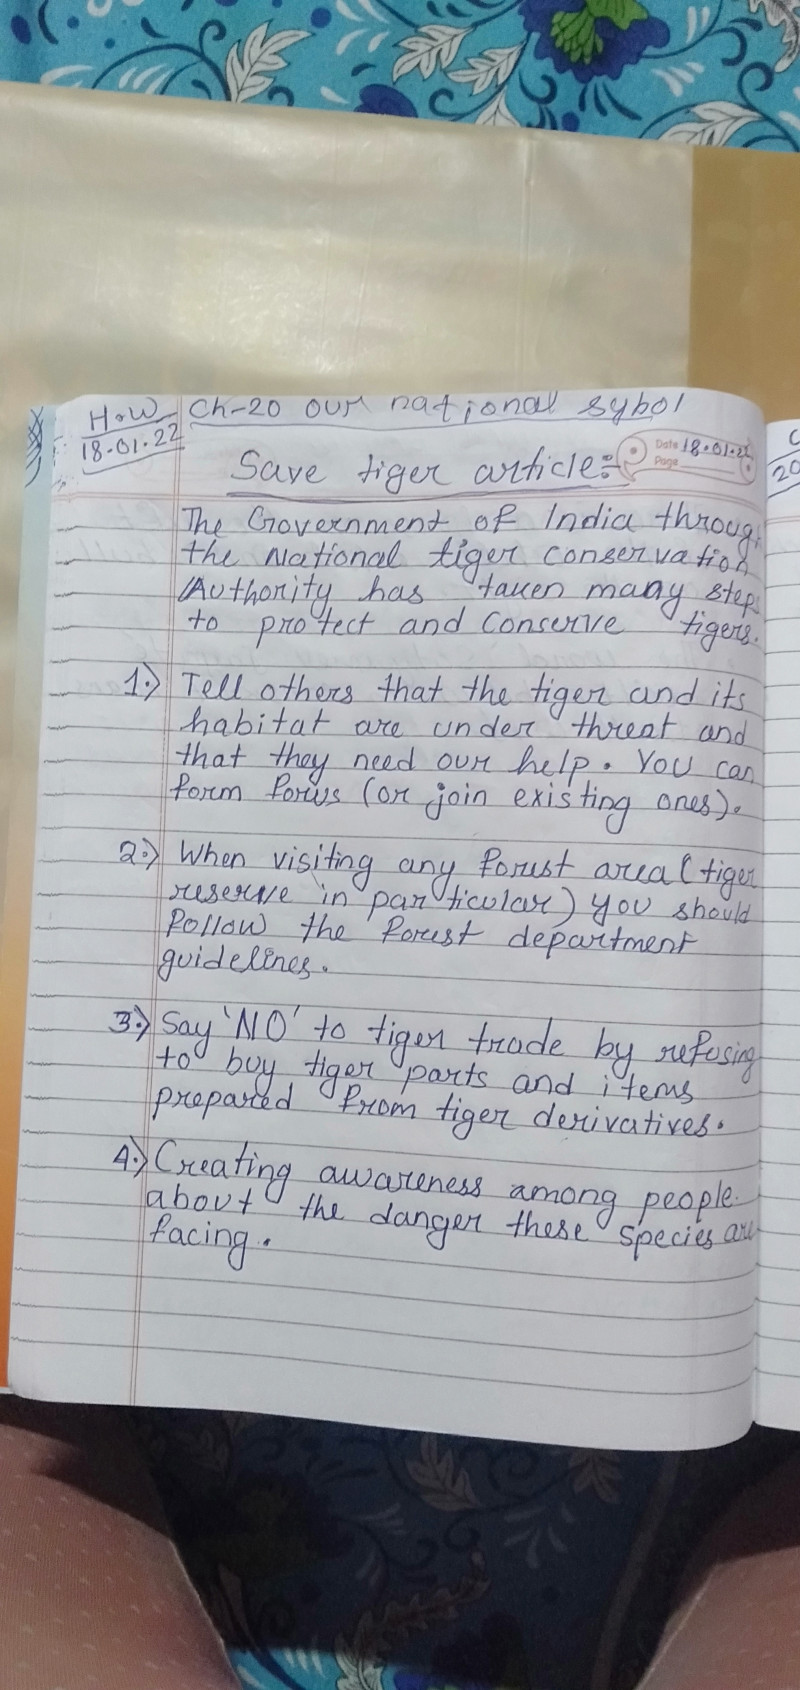 H.W Ch-20 our national sybol
18.01.22
Date 18.01.22
Page
Save tiger article:-
The Government of India through
the National tiger conservation
Authority has taken many steps
to protect and Conserve tigers.
1.) Tell others that the tiger and its
habitat are under threat and
that they need our help. You can
form forus (or join existing ones).
2.) When visiting any forest area (tiger
reserve in particular) you should
follow the forest department
guidelines.
3.) Say 'NO' to tiger trade by refusing
to buy tiger parts and items
prepared from tiger derivatives.
4.) Creating awareness among people
about the danger these species are
facing.
C
20